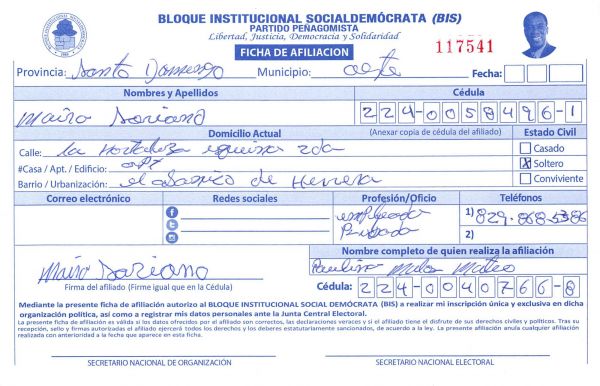 BLOQUE INSTITUCIONAL SOCIALDEMÓCRATA (BIS)
PARTIDO PEÑAGOMISTA
Libertad, Justicia, Democracia y Solidaridad
FICHA DE AFILIACION
117541
Provincia: Santo Domingo Municipio: oeste Fecha:
Nombres y Apellidos Cédula
Mairo Soriano 224-0058496-1
Domicilio Actual (Anexar copia de cédula del afiliado) Estado Civil
Calle: la esquina 2da Casado
#Casa / Apt. / Edificio: apt X Soltero
Barrio / Urbanización: el de Herrera Conviviente
Correo electrónico Redes sociales Profesión/Oficio Teléfonos
empleado 1) 829-868-5386
Privado 2)
Nombre completo de quien realiza la afiliación
Mairo Soriano Mateo
Firma del afiliado (Firme igual que en la Cédula) Cédula: 224-0040766-8
Mediante la presente ficha de afiliación autorizo al BLOQUE INSTITUCIONAL SOCIAL DEMÓCRATA (BIS) a realizar mi inscripción única y exclusiva en dicha
organización política, así como a registrar mis datos personales ante la Junta Central Electoral.
La presente ficha de afiliación se dará válida si los datos ofrecidos por el afiliado son correctos, las declaraciones veraces y si el afiliado tiene el disfrute de sus derechos civiles y políticos. Tras su
recepción, sello y firmas autorizadas el afiliado ejercerá todos los derechos y los deberes estatutariamente sancionados, de acuerdo a la ley. La presente afiliación anula cualquier afiliación
realizada con anterioridad a la fecha que aparece en esta ficha.
SECRETARIO NACIONAL DE ORGANIZACIÓN SECRETARIO NACIONAL ELECTORAL